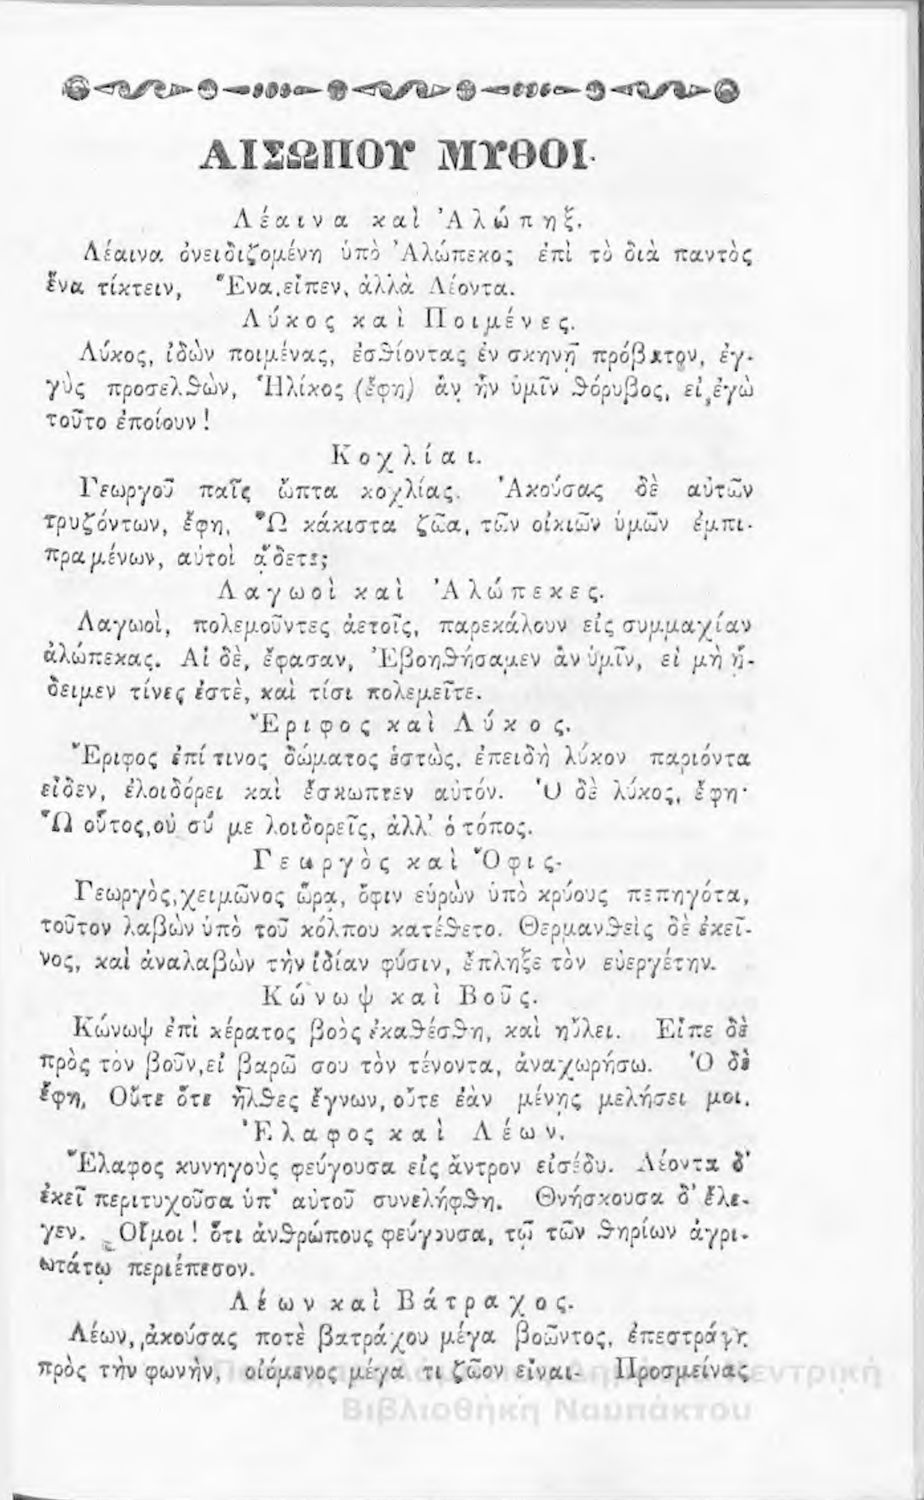 ΑΙΣΩΠΟΥ ΜΥΘΟΙ.
Λέαινα καὶ Ἀλώπηξ.
Λέαινα ὀνειδιζομένη ὑπὸ Ἀλώπεκος ἐπὶ τὸ διὰ παντὸς
ἕνα τίκτειν, Ἕνα, εἶπεν, ἀλλὰ Λέοντα.
Λύκος καὶ Ποιμένες.
Λύκος, ἰδὼν ποιμένας, ἐσθίοντας ἐν σκηνῇ πρόβατον, ἐγ-
γὺς προσελθὼν, Ἡλίκος (ἔφη) ἂν ἦν ὑμῖν θόρυβος, εἰ ἐγὼ
τοῦτο ἐποίουν!
Κοχλίαι.
Γεωργοῦ παῖς ὤπτα κοχλίας. Ἀκούσας δὲ αὐτῶν
τρυζόντων, ἔφη, Ὦ κάκιστα ζῶα, τῶν οἰκιῶν ὑμῶν ἐμπι-
πραμένων, αὐτοὶ ᾄδετε;
Λαγωοὶ καὶ Ἀλώπεκες.
Λαγωοὶ, πολεμοῦντες ἀετοῖς, παρεκάλουν εἰς συμμαχίαν
ἀλώπεκας. Αἱ δὲ, ἔφασαν, Ἐβοηθήσαμεν ἂν ὑμῖν, εἰ μὴ ᾔ-
δειμεν τίνες ἐστὲ, καὶ τίσι πολεμεῖτε.
Ἔριφος καὶ Λύκος.
Ἔριφος ἐπί τινος δώματος ἑστὼς, ἐπειδὴ λύκον παριόντα
εἶδεν, ἐλοιδόρει καὶ ἔσκωπτεν αὐτόν. Ὁ δὲ λύκος, ἔφη·
Ὦ οὗτος, οὐ σύ με λοιδορεῖς, ἀλλ' ὁ τόπος.
Γεωργὸς καὶ Ὄφις.
Γεωργὸς, χειμῶνος ὥρα, ὄφιν εὑρὼν ὑπὸ κρύους πεπηγότα,
τοῦτον λαβὼν ὑπὸ τοῦ κόλπου κατέθετο. Θερμανθεὶς δὲ ἐκεῖ-
νος, καὶ ἀναλαβὼν τὴν ἰδίαν φύσιν, ἔπληξε τὸν εὐεργέτην.
Κώνωψ καὶ Βοῦς.
Κώνωψ ἐπὶ κέρατος βοὸς ἐκαθέσθη, καὶ ηὔλει. Εἶπε δὲ
πρὸς τὸν βοῦν, εἰ βαρῶ σου τὸν τένοντα, ἀναχωρήσω. Ὁ δὲ
ἔφη, Οὔτε ὅτε ἦλθες ἔγνων, οὔτε ἐὰν μένῃς μελήσει μοι.
Ἔλαφος καὶ Λέων.
Ἔλαφος κυνηγοὺς φεύγουσα εἰς ἄντρον εἰσέδυ. Λέοντα δ'
ἐκεῖ περιτυχοῦσα ὑπ' αὐτοῦ συνελήφθη. Θνήσκουσα δ' ἔλε-
γεν. Οἴμοι! ὅτι ἀνθρώπους φεύγουσα, τῷ τῶν θηρίων ἀγρι-
ωτάτῳ περιέπεσον.
Λέων καὶ Βάτραχος.
Λέων, ἀκούσας ποτὲ βατράχου μέγα βοῶντος, ἐπεστράφη
πρὸς τὴν φωνὴν, οἰόμενος μέγα τι ζῶον εἶναι. Προσμείνας
Κεντρική
Βιβλιοθήκη Ναυπάκτου